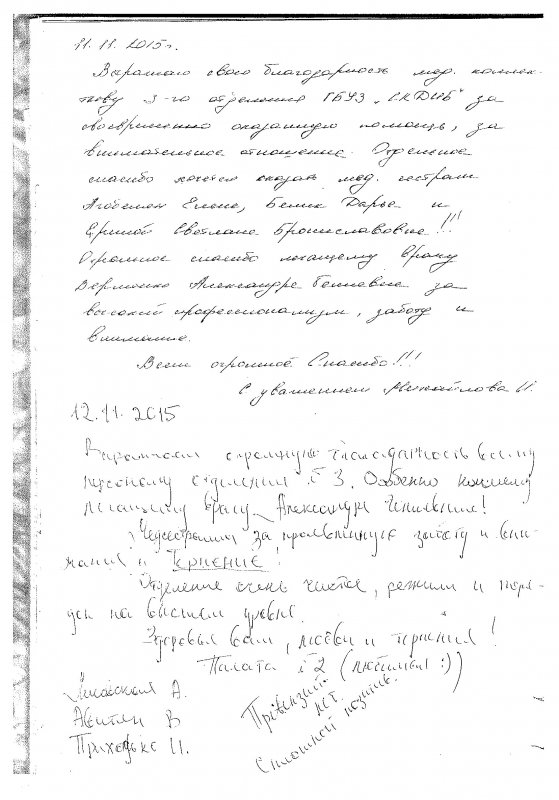 11.11.2015г.
Выражаю свою благодарность мед. коллек-
тиву 3-го отделения ГБУЗ „СКДИБ" за
своевременно оказанную помощь, за
внимательное отношение. Отдельное
спасибо хочется сказать мед. сестрам
Елене, Дарье и
Светлане Брониславовне!!!
Огромное спасибо лечащему врачу
Александре Генновне за
высокий профессионализм, заботу и
внимание.
Всем огромное Спасибо!!!
С уважением Михайлова И.
12.11.2015
Выражаем огромную благодарность всему
персоналу отделения №3. Особенно нашему
лечащему врачу Александре
Медсестрам за проявленную заботу и вни-
мание и Терпение!
Отделение очень чистое, режим и поря-
док на высшем уровне.
Здоровья вам, любви и терпения!
Палата №2 (любимая :))
А.
В
Приходько И.
Претензий
нет.
Сплошной позитив.